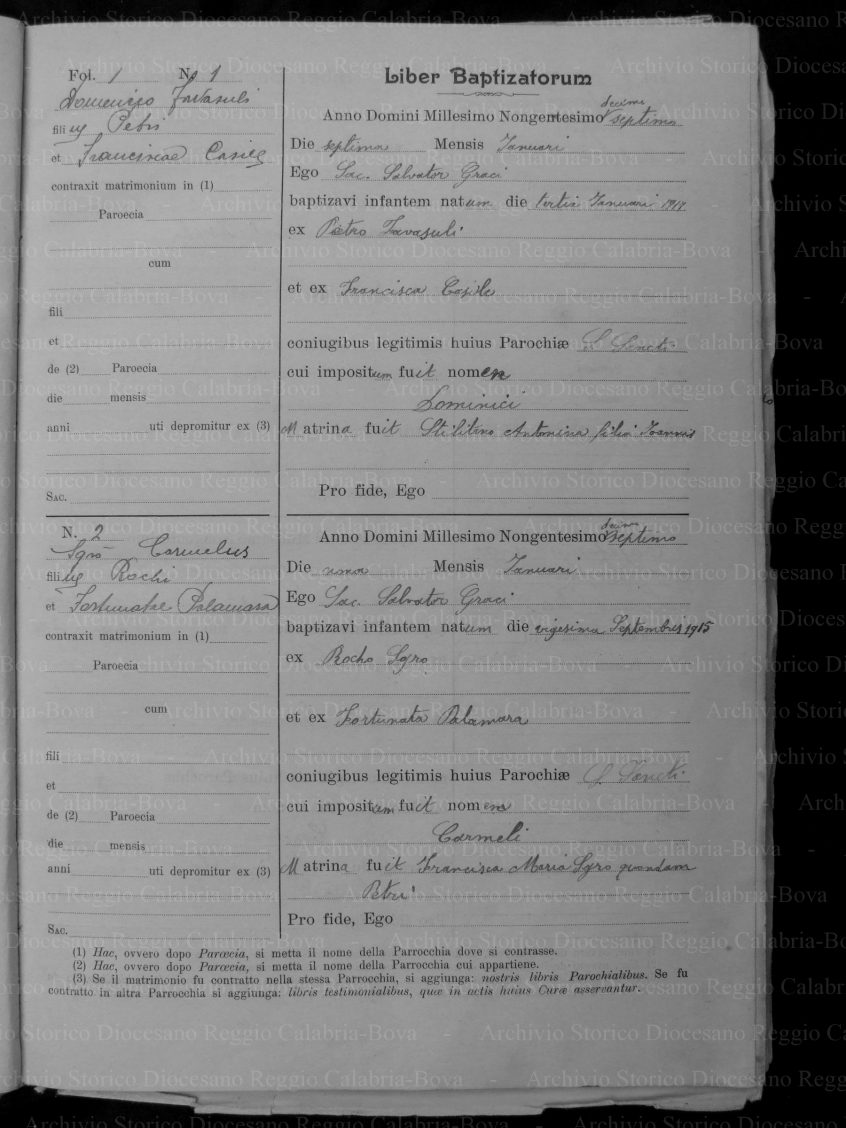 Fol. 1 N. 1
Domenico Favasuli
filius Petri
et Franciscae Casile
contraxit matrimonium in (1)
Paroecia
cum
fili
et
de (2) Paroecia
die mensis
anni uti depromitur ex (3)
Sac.
Liber Baptizatorum
decimo
Anno Domini Millesimo Nongentesimo septimo
Die septima Mensis Ianuari
Ego Sac. Salvator Graci
baptizavi infantem natum die tertia Ianuari 1917
ex Pietro Favasuli
et ex Francisca Casile
coniugibus legitimis huius Parochiæ
cui impositum fuit nomen
Dominici
Matrina fuit Stilitano Antonina filia Joannis
Pro fide, Ego
N. 2
Sgrò Carmelus
filius Rochi
et Fortunatae Palamara
contraxit matrimonium in (1)
Paroecia
cum
fili
et
de (2) Paroecia
die mensis
anni uti depromitur ex (3)
Sac.
decimo
Anno Domini Millesimo Nongentesimo septimo
Die nona Mensis Ianuari
Ego Sac. Salvator Graci
baptizavi infantem natum die vigesima Septembris 1915
ex Rocho Sgro
et ex Fortunata Palamara
coniugibus legitimis huius Parochiæ
cui impositum fuit nomen
Carmeli
Matrina fuit Francisca Maria Sgro quondam
Petri
Pro fide, Ego
(1) Hac, ovvero dopo Parœcia, si metta il nome della Parrocchia dove si contrasse.
(2) Hac, ovvero dopo Parœcia, si metta il nome della Parrocchia cui appartiene.
(3) Se il matrimonio fu contratto nella stessa Parrocchia, si aggiunga: nostris libris Parochialibus. Se fu
contratto in altra Parrocchia si aggiunga: libris testimonialibus, quæ in actis huius Curæ asservantur.
Archivio Storico Diocesano Reggio Calabria-Bova